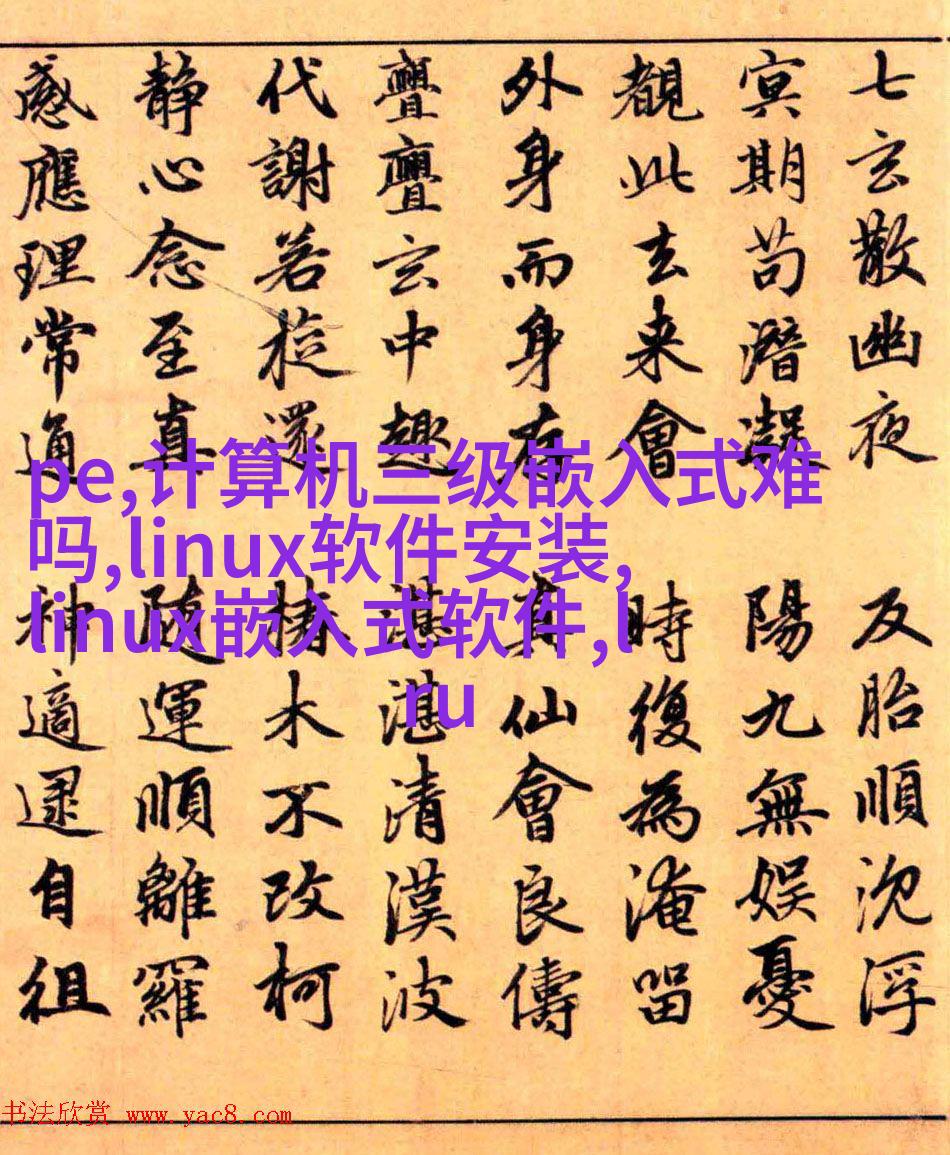 七玄散幽夜 反胎順沈浮
冥期苟潛凝 陽九無娱憂
覩此去来會 時復為淹留
外身而身存 真仙會良儔
亹亹玄中趣 湛湛清漢波
代謝若旋還 椿木不改柯
静心念至真 隨運順離羅
感應理常通 神適逮自徂
pe,计算机三级嵌入式难
吗,linux软件安装,
linux嵌入式软件,l
ru
书法欣赏 www.yac8.com